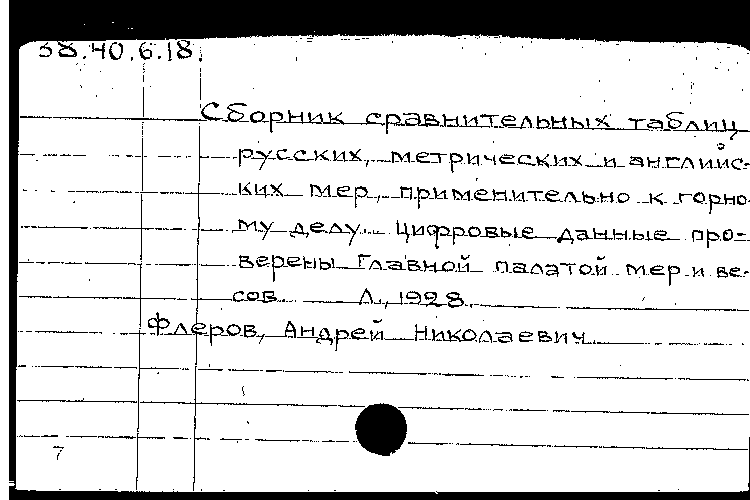 38.40.6.18.
Сборник сравнительных таблиц
русских, метрических и английс-
ких мер, применительно к горно-
му делу. Цифровые данные про-
верены Главной палатой мер и ве-
сов. Л., 1928.
Флеров, Андрей Николаевич
7